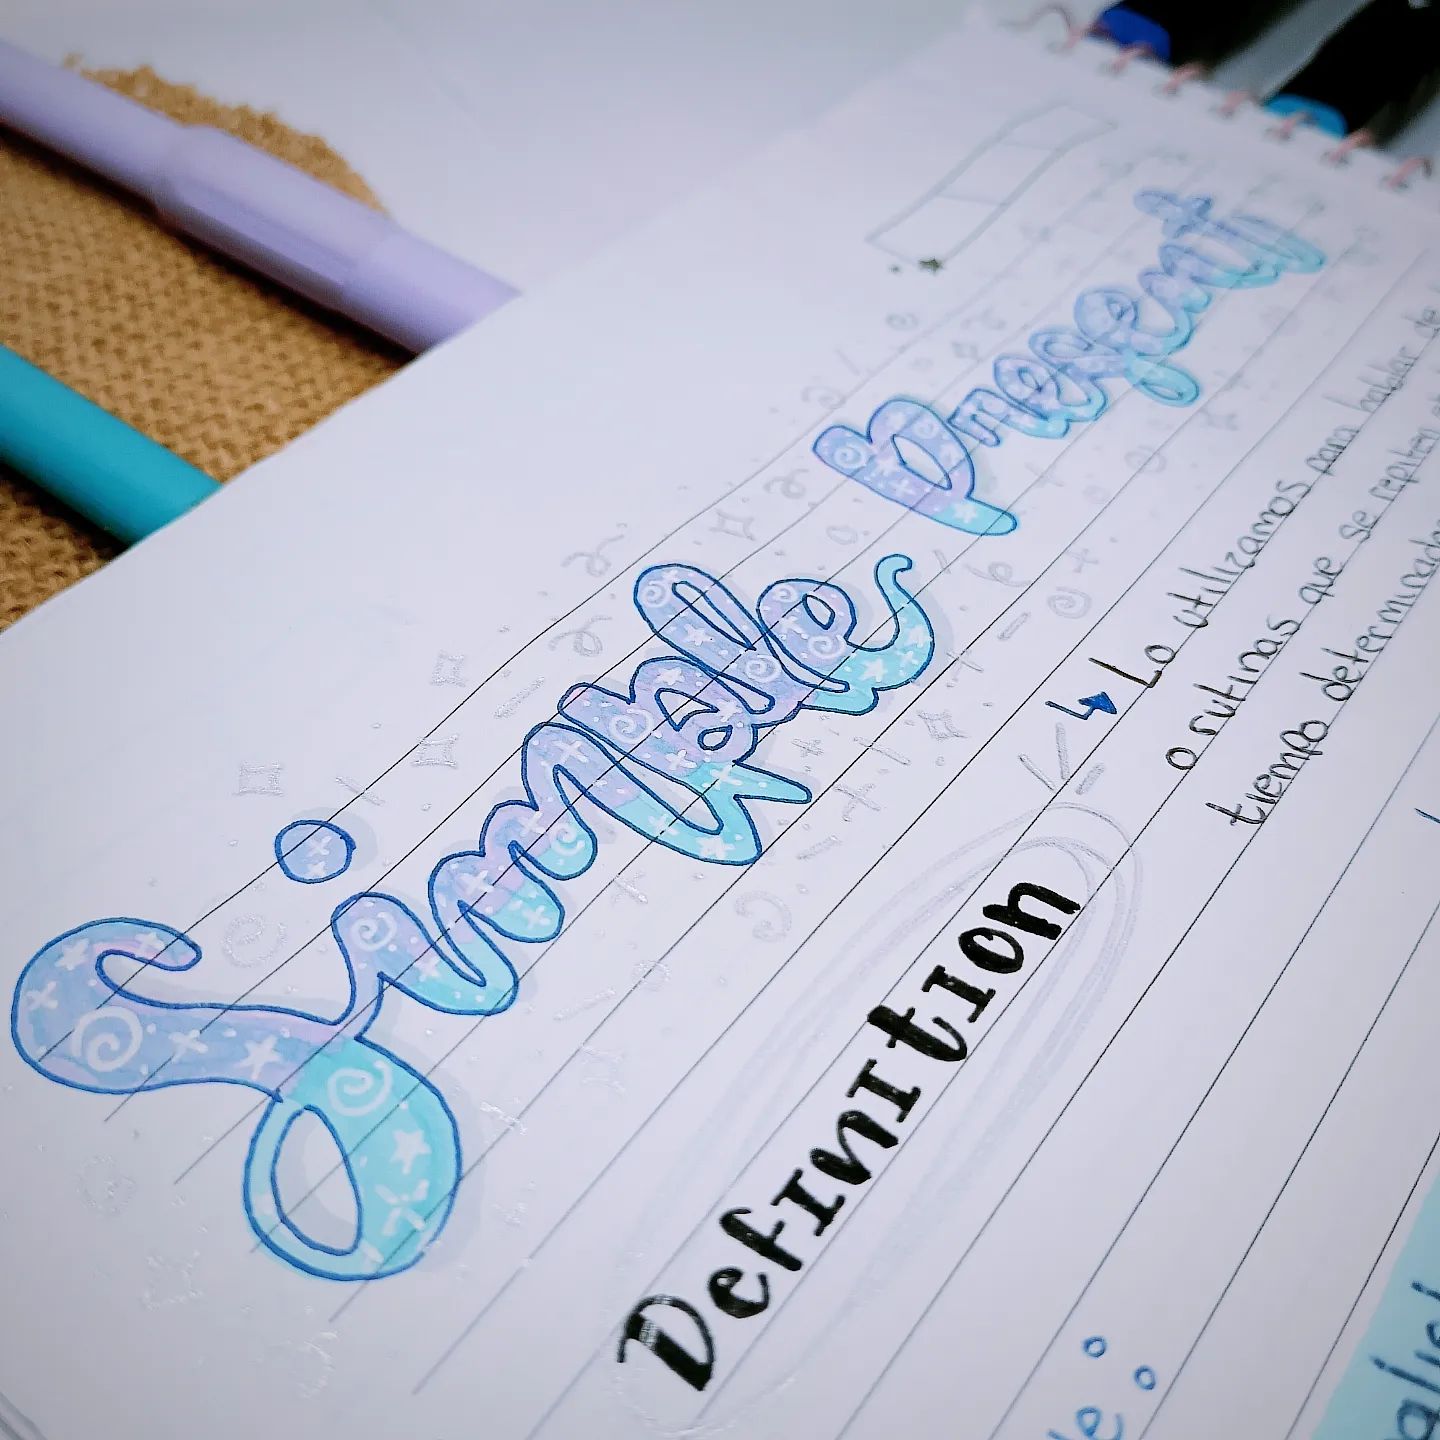 Simple present
Definition
Lo utilizamos para hablar de
o rutinas que se repiten
tiempo determinado